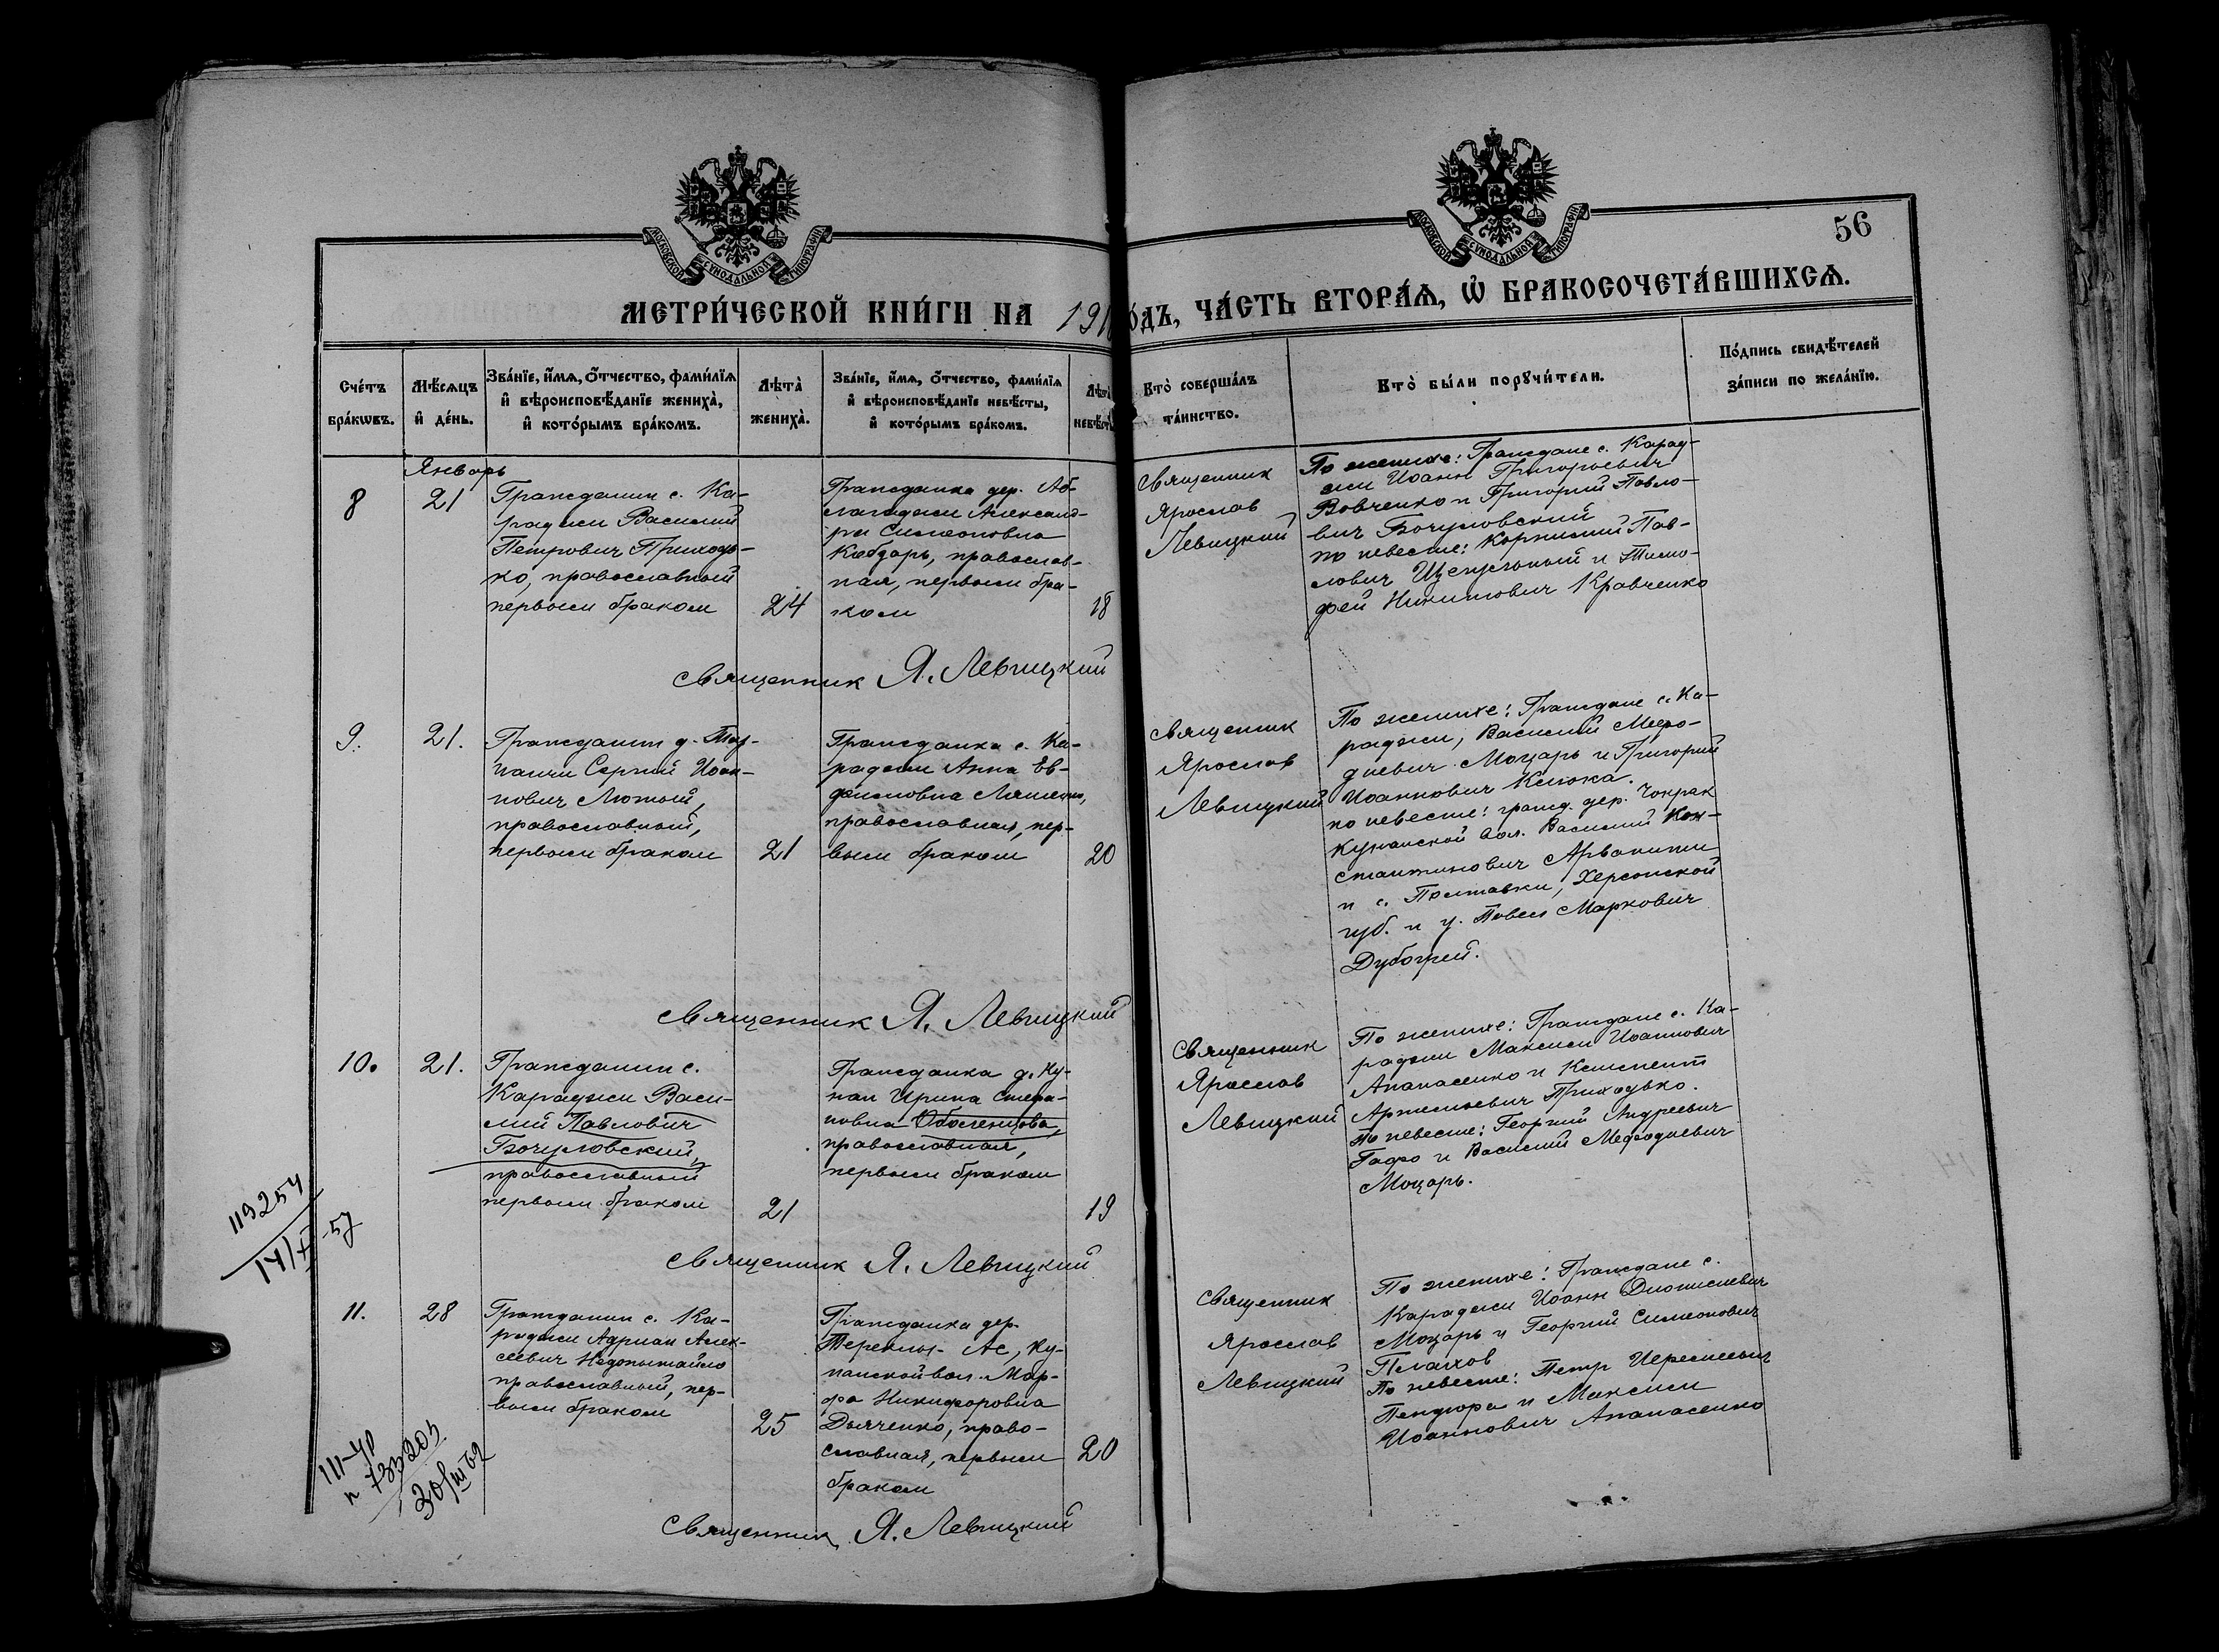 МОСКОВСКОЙ СѴНОДАЛЬНОЙ ТИПОГРАФІИ
МОСКОВСКОЙ СѴНОДАЛЬНОЙ ТИПОГРАФІИ
56
МЕТРИ́ЧЕСКОЙ КНИ́ГИ НА 191
О́ДЪ, ЧА́СТЬ ВТОРА́Ѧ, Ѽ БРАКОСОЧЕТА́ВШИХСѦ.
Сче́тъ бра́кѡвъ.
Мѣ́сяцъ и҆ де́нь.
Зва́нїе, и҆́мѧ, ѻ҆́тчество, фами́лїѧ и҆ вѣроисповѣ́данїе жениха̀, и҆ кото́рымъ бра́комъ.
Лѣта̀ жениха̀.
Зва́нїе, и҆́мѧ, ѻ҆́тчество, фами́лїѧ и҆ вѣроисповѣ́данїе невѣ́сты, и҆ кото́рымъ бра́комъ.
Лѣта̀ невѣ́сты
Кто̀ соверша́лъ та́инство.
Кто̀ бы́ли порꙋчи́тели.
По́дпись свидѣ́телей за́писи по жела́нїю.
Январь
8
21
Гражданин с. Ка-
раджи Василий
Петрович Приходь-
ко, православный
первым браком
24
Гражданка дер. Аб-
лагаджи Александ-
ра Симеоновна
Кобзарь, православ-
ная, первым бра-
ком
18
Священник
Ярослав
Левицкий
По женихе: Граждане с. Карад-
жи Иоанн Григорьевич
Вовченко и Григорий Павло-
вич Бочуловский
по невесте: Корнилий Пав-
лович Щепульный и Тимо-
фей Никитович Кравченко
Священник Я. Левицкий
9.
21.
Гражданин д. Тар-
Сергий Иоан-
нович Лютый,
православный,
первым браком
21
Гражданка с. Ка-
раджи Анна Ев-
фимовна
православная, пер-
вым браком
20
Священник
Ярослав
Левицкий
По женихе: Граждане с. Ка-
раджи, Василий Мефо-
диевич Моцарь и Григорий
Иоаннович Клюка.
по невесте: гражд. дер. Чокрак
Кунанской вол. Василий Кон-
стантинович Арванити
и с. Полтавки, Херсонской
губ. и у. Павел Маркович
Дубогрей.
Священник Я. Левицкий
10.
21.
Гражданин с.
Караджи Васи-
лий Павлович
Бочуловский,
православный
первым браком
21
Гражданка д. Ку-
нан Ирина Стефа-
новна Оболенцова,
православная,
первым браком
19
Священник
Ярослав
Левицкий
По женихе: Граждане с. Ка-
раджи Максим Иоаннович
Апанасенко и Климент
Артемьевич Приходько.
По невесте: Георгий Андреевич
Гафо и Василий Мефодиевич
Моцарь.
119254
14/XI-57
Священник Я. Левицкий
11.
28
Гражданин с. Ка-
раджи Адриан Алек-
сеевич Недопытайло
православный, пер-
вым браком
25
Гражданка дер.
Терекли-Ас, Ку-
нанской вол. Мар-
фа Никифоровна
Дьяченко, право-
славная, первым
браком
20
Священник
Ярослав
Левицкий
По женихе: Граждане с.
Караджи Иоанн Дионисиевич
Моцарь и Георгий Симеонович
Плахов
По невесте: Петр Иеремеевич
Пендюра и Максим
Иоаннович Апанасенко
Священник Я. Левицкий